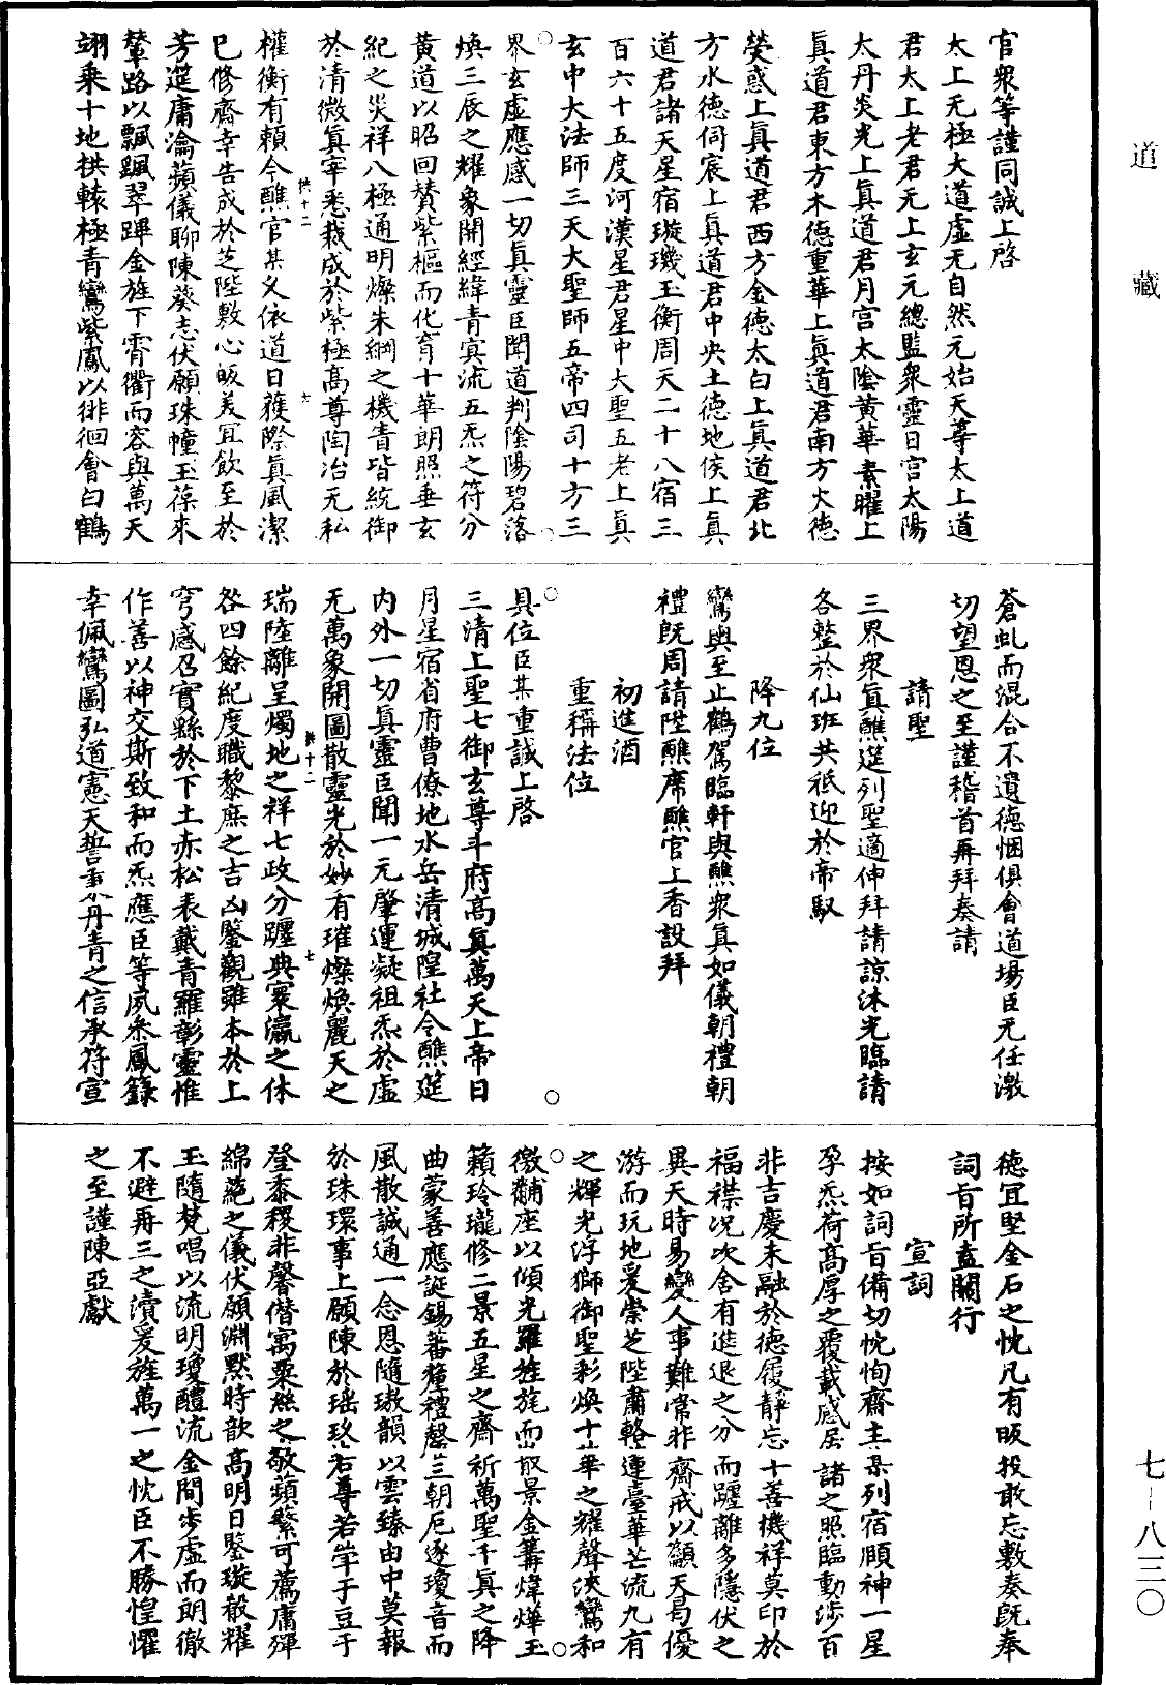 道藏
官衆等謹同誠上啓
太上无極大道虛无自然元始天尊太上道
君太上老君无上玄元總監衆靈日宫太陽
太丹炎光上真道君月宫太陰黄華素曜上
真道君東方木德重華上真道君南方火德
熒惑上真道君西方金德太白上真道君北
方水德伺宸上真道君中央土德地侯上真
道君諸天星宿璇璣玉衡周天二十八宿三
百六十五度河漢星君星中大聖五老上真
玄中大法師三天大聖師五帝四司十方三
界玄虛應感一切真靈臣聞道判陰陽碧落
煥三辰之耀象開經緯青冥流五炁之符分
黄道以昭回賛紫樞而化育十華朗照垂玄
紀之災祥八極通明燦朱綱之機眚皆統御
於清微真宰悉裁成於紫極髙尊陶冶无私
權衡有賴今醮官某乂依道日䕶際真風潔
已修齋幸告成於芝陛敷心皈羙冝飲至於
芳筵庸瀹蘋儀聊陳葵志伏願珠幢玉葆來
輦路以飄颻翠蹕金旌下霄衢而容與萬天
翊乘十地拱轅極青鸞紫鳳以徘徊會白鶴
拱十二
七
蒼虬而混合不遺德悃俱會道場臣无任激
切望恩之至謹稽首再拜奏請
請聖
三界衆真醮筵列聖適伸拜請諒沐光臨請
各整於仙班共祗迎於帝馭
降九位
鸞輿至止鶴駕臨軒與醮衆真如儀朝禮朝
禮旣周請陞醮席醮官上香設拜
初進酒
重稱法位
具位臣某重誠上啓
三清上聖七御玄尊斗府髙真萬天上帝日
月星宿省府曹僚地水岳清城隍社令醮筵
内外一切真靈臣聞一元肇運凝祖炁於虛
无萬象開圖散靈光於妙有璀燦煥麗天之
瑞陸離呈燭地之祥七政分躔典寰瀛之休
咎四餘紀度職黎庶之吉凶鑒觀雖本於上
穹感召實繇於下土赤松表戴青羅彰靈惟
作善以神交斯致和而炁應臣等夙叅鳳籙
幸佩鸞圖弘道憲天誓秉丹青之信承符宣
拱十二
七
德冝堅金石之忱凡有皈投敢忘敷奏旣奉
詞旨所盍關行
宣詞
按如詞旨備切忱恂齋主杲列宿頤神一星
孕炁荷髙厚之覆載感居諸之照臨動渉百
非吉慶未融於德履静忘十善機祥莫印於
福襟況次舍有進退之分而躔離多隱伏之
異天時易變人事難常非齋戒以籲天曷優
游而玩地爰崇芝陛肅輅蓮臺華芒流九有
之輝光浮獅御聖彩煥十華之耀聲浹鸞和
徼黼座以傾光羅旌旄而取景金篝煒燁玉
籟玲瓏修二景五星之齋祈萬聖千真之降
曲蒙善應誕錫蕃釐禮罄三朝卮逐瓊音而
風散誠通一念恩隨璈韻以雲臻由中莫報
於珠環事上願陳於瑶玖若尊若斝于豆于
登黍稷非馨僣寓粟絲之敬蘋蘩可薦庸殫
綿蕝之儀伏願淵默時歆髙明日鑒璇殽耀
玉隨梵唱以流明瓊醴流金間步虛而朗徹
不避再三之瀆爰旌萬一之忱臣不勝惶懼
之至謹陳亞獻
七-八三〇